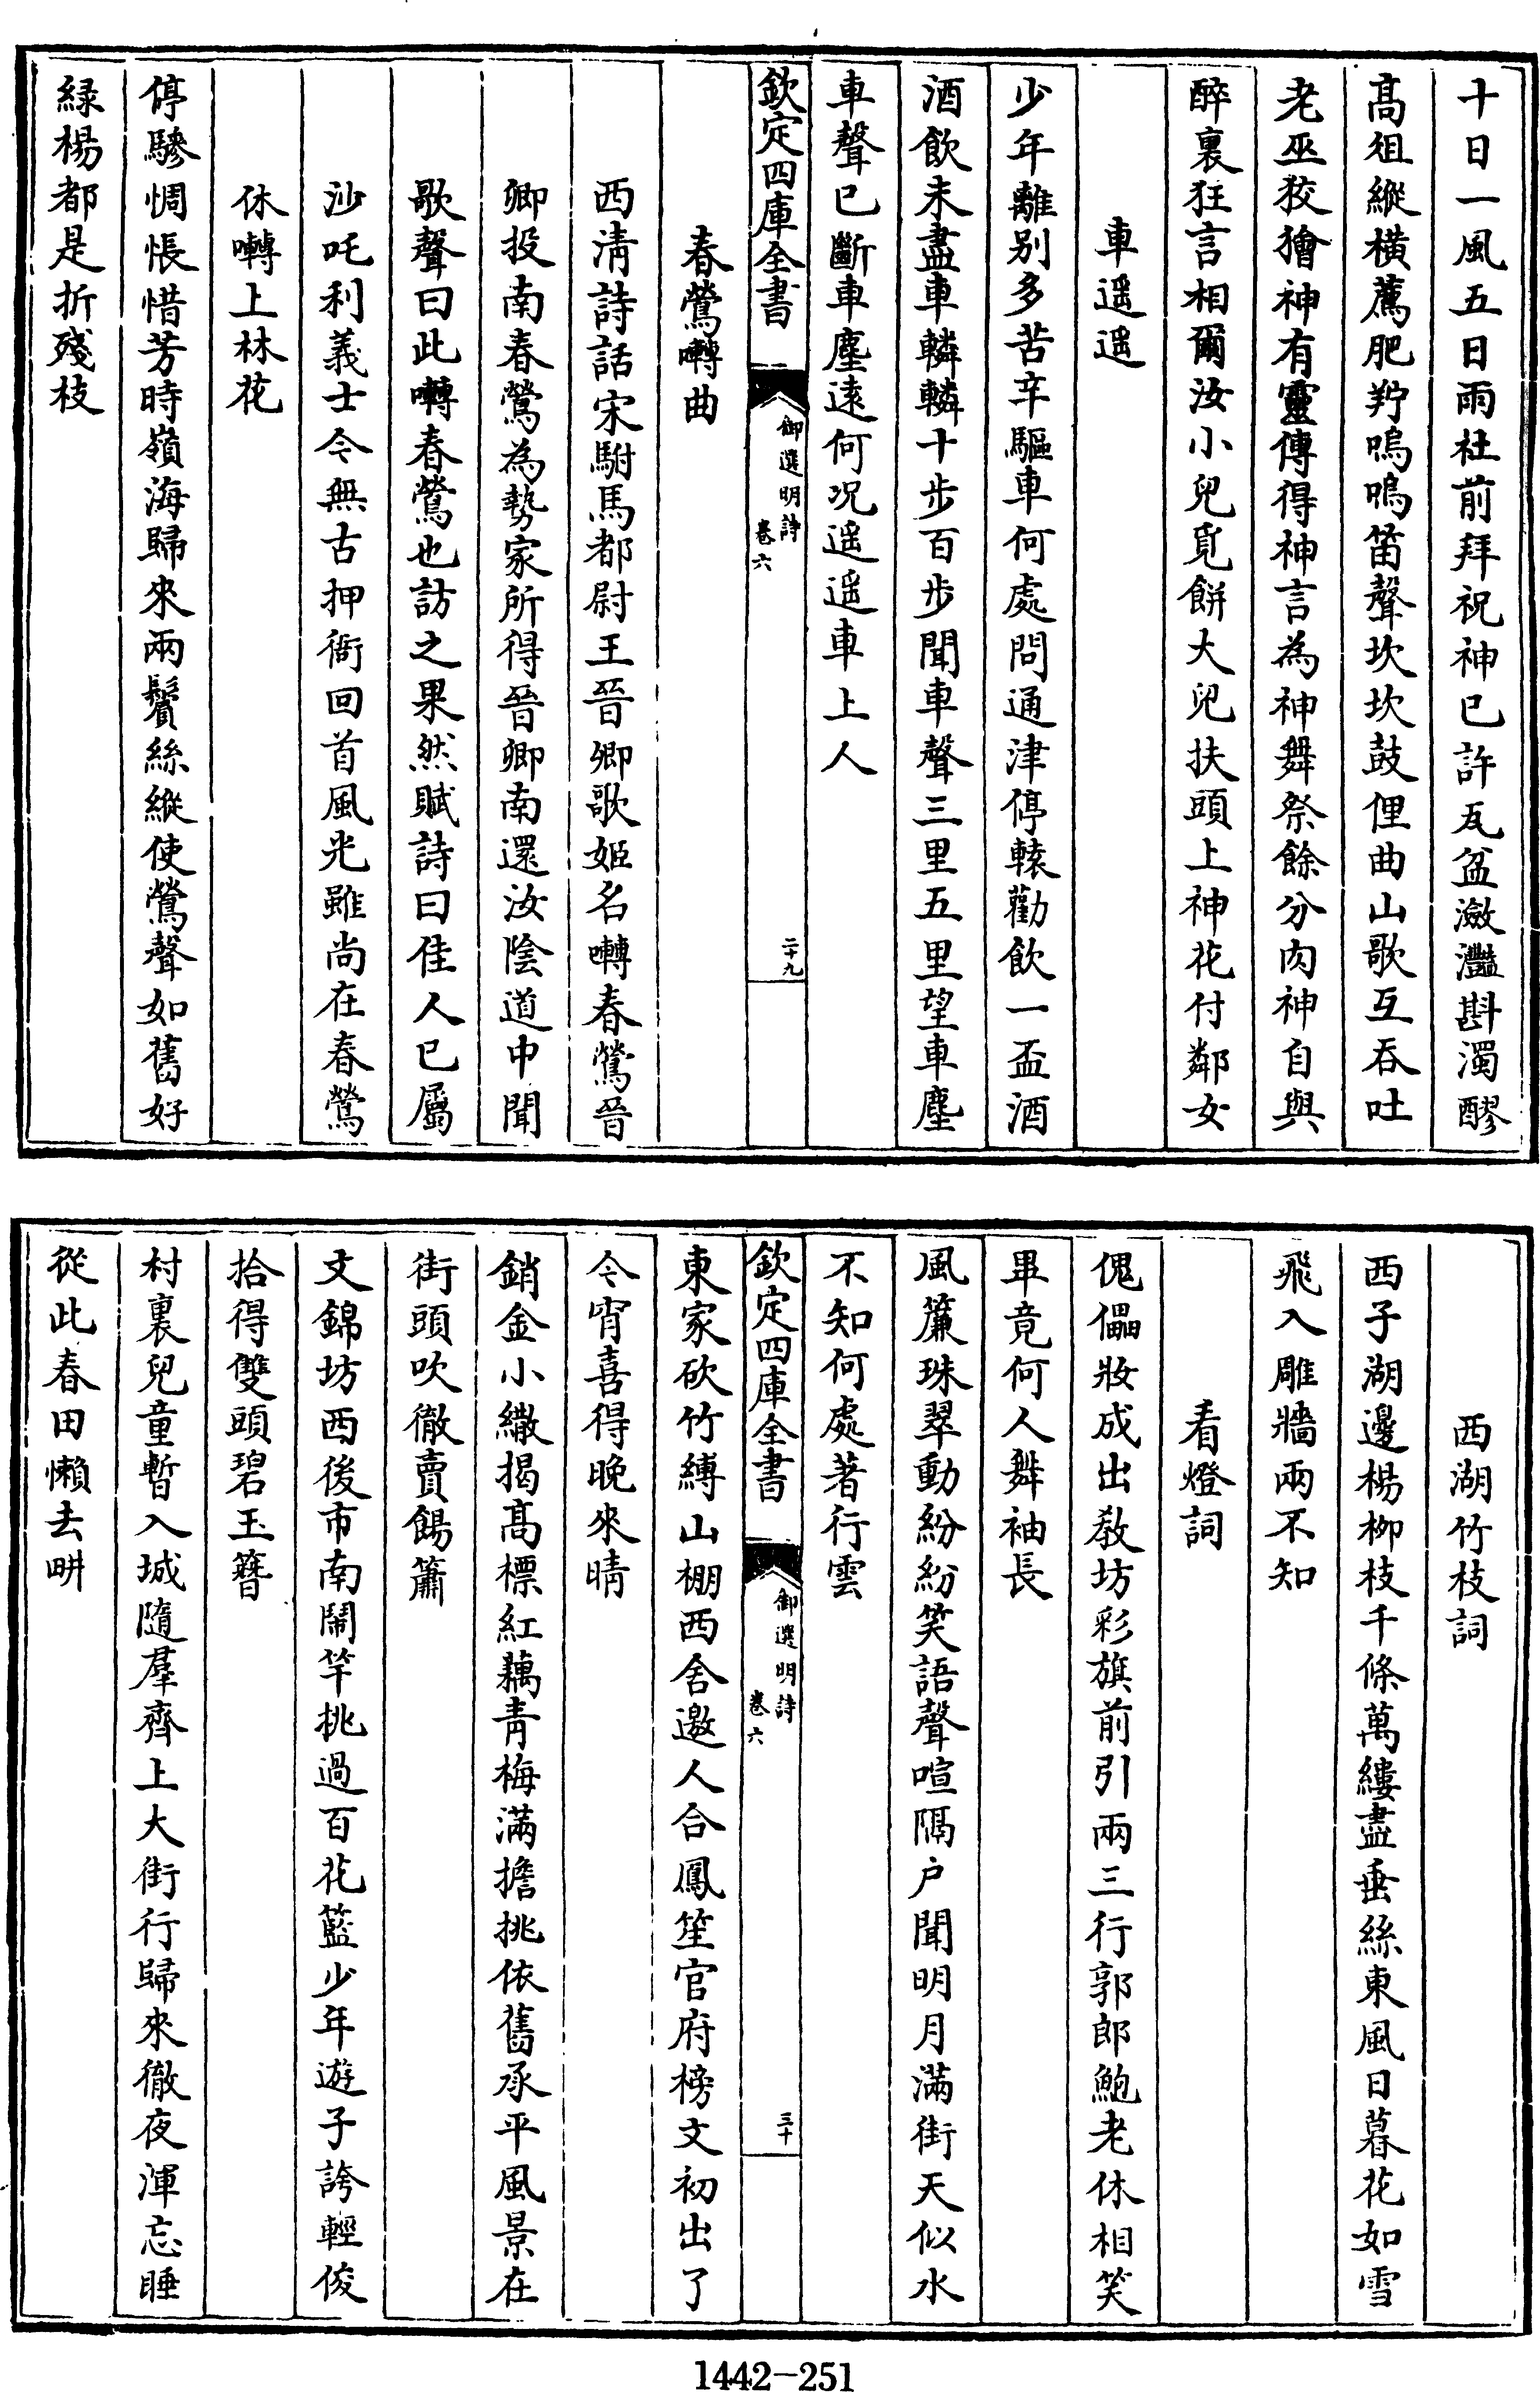 十日一風五日雨社前拜祝神已許瓦盆瀲灩斟濁醪
高俎縱横薦肥羜嗚嗚笛聲坎坎鼓俚曲山歌互吞吐
老巫狡獪神有靈傳得神言為神舞祭餘分肉神自與
醉裏狂言相爾汝小兒覓餅大兒扶頭上神花付鄰女
車遥遥
少年離别多苦辛驅車何處問通津停轅勸飲一盃酒
酒飲未盡車轔轔十步百步聞車聲三里五里望車塵
車聲已斷車塵遠何况遥遥車上人
欽定四庫全書
御選明詩
卷六
二十九
春鶯囀曲
西清詩話宋駙馬都尉王晉卿歌姬名囀春鶯晉
卿投南春鶯為勢家所得晉卿南還汝陰道中聞
歌聲曰此囀春鶯也訪之果然賦詩曰佳人已屬
沙吒利義士今無古押衙回首風光雖尚在春鶯
休囀上林花
停驂惆悵惜芳時嶺海歸來兩鬢絲縱使鶯聲如舊好
緑楊都是折殘枝
西湖竹枝詞
西子湖邊楊柳枝千條萬縷盡垂絲東風日暮花如雪
飛入雕牆兩不知
看燈詞
傀儡妝成出教坊彩旗前引兩三行郭郎鮑老休相笑
畢竟何人舞袖長
風簾珠翠動紛紛笑語聲喧隔户聞明月滿街天似水
不知何處著行雲
欽定四庫全書
御選明詩
卷六
三十
東家砍竹縛山棚西舍邀人合鳳笙官府榜文初出了
今宵喜得晚來晴
銷金小繖揭高標紅藕青梅滿擔挑依舊承平風景在
街頭吹徹賣餳簫
文錦坊西後市南鬧竿挑過百花籃少年遊子誇輕俊
拾得雙頭碧玉簪
村裏兒童暫入城隨羣齊上大街行歸來徹夜渾忘睡
從此春田懶去畊
1442-251